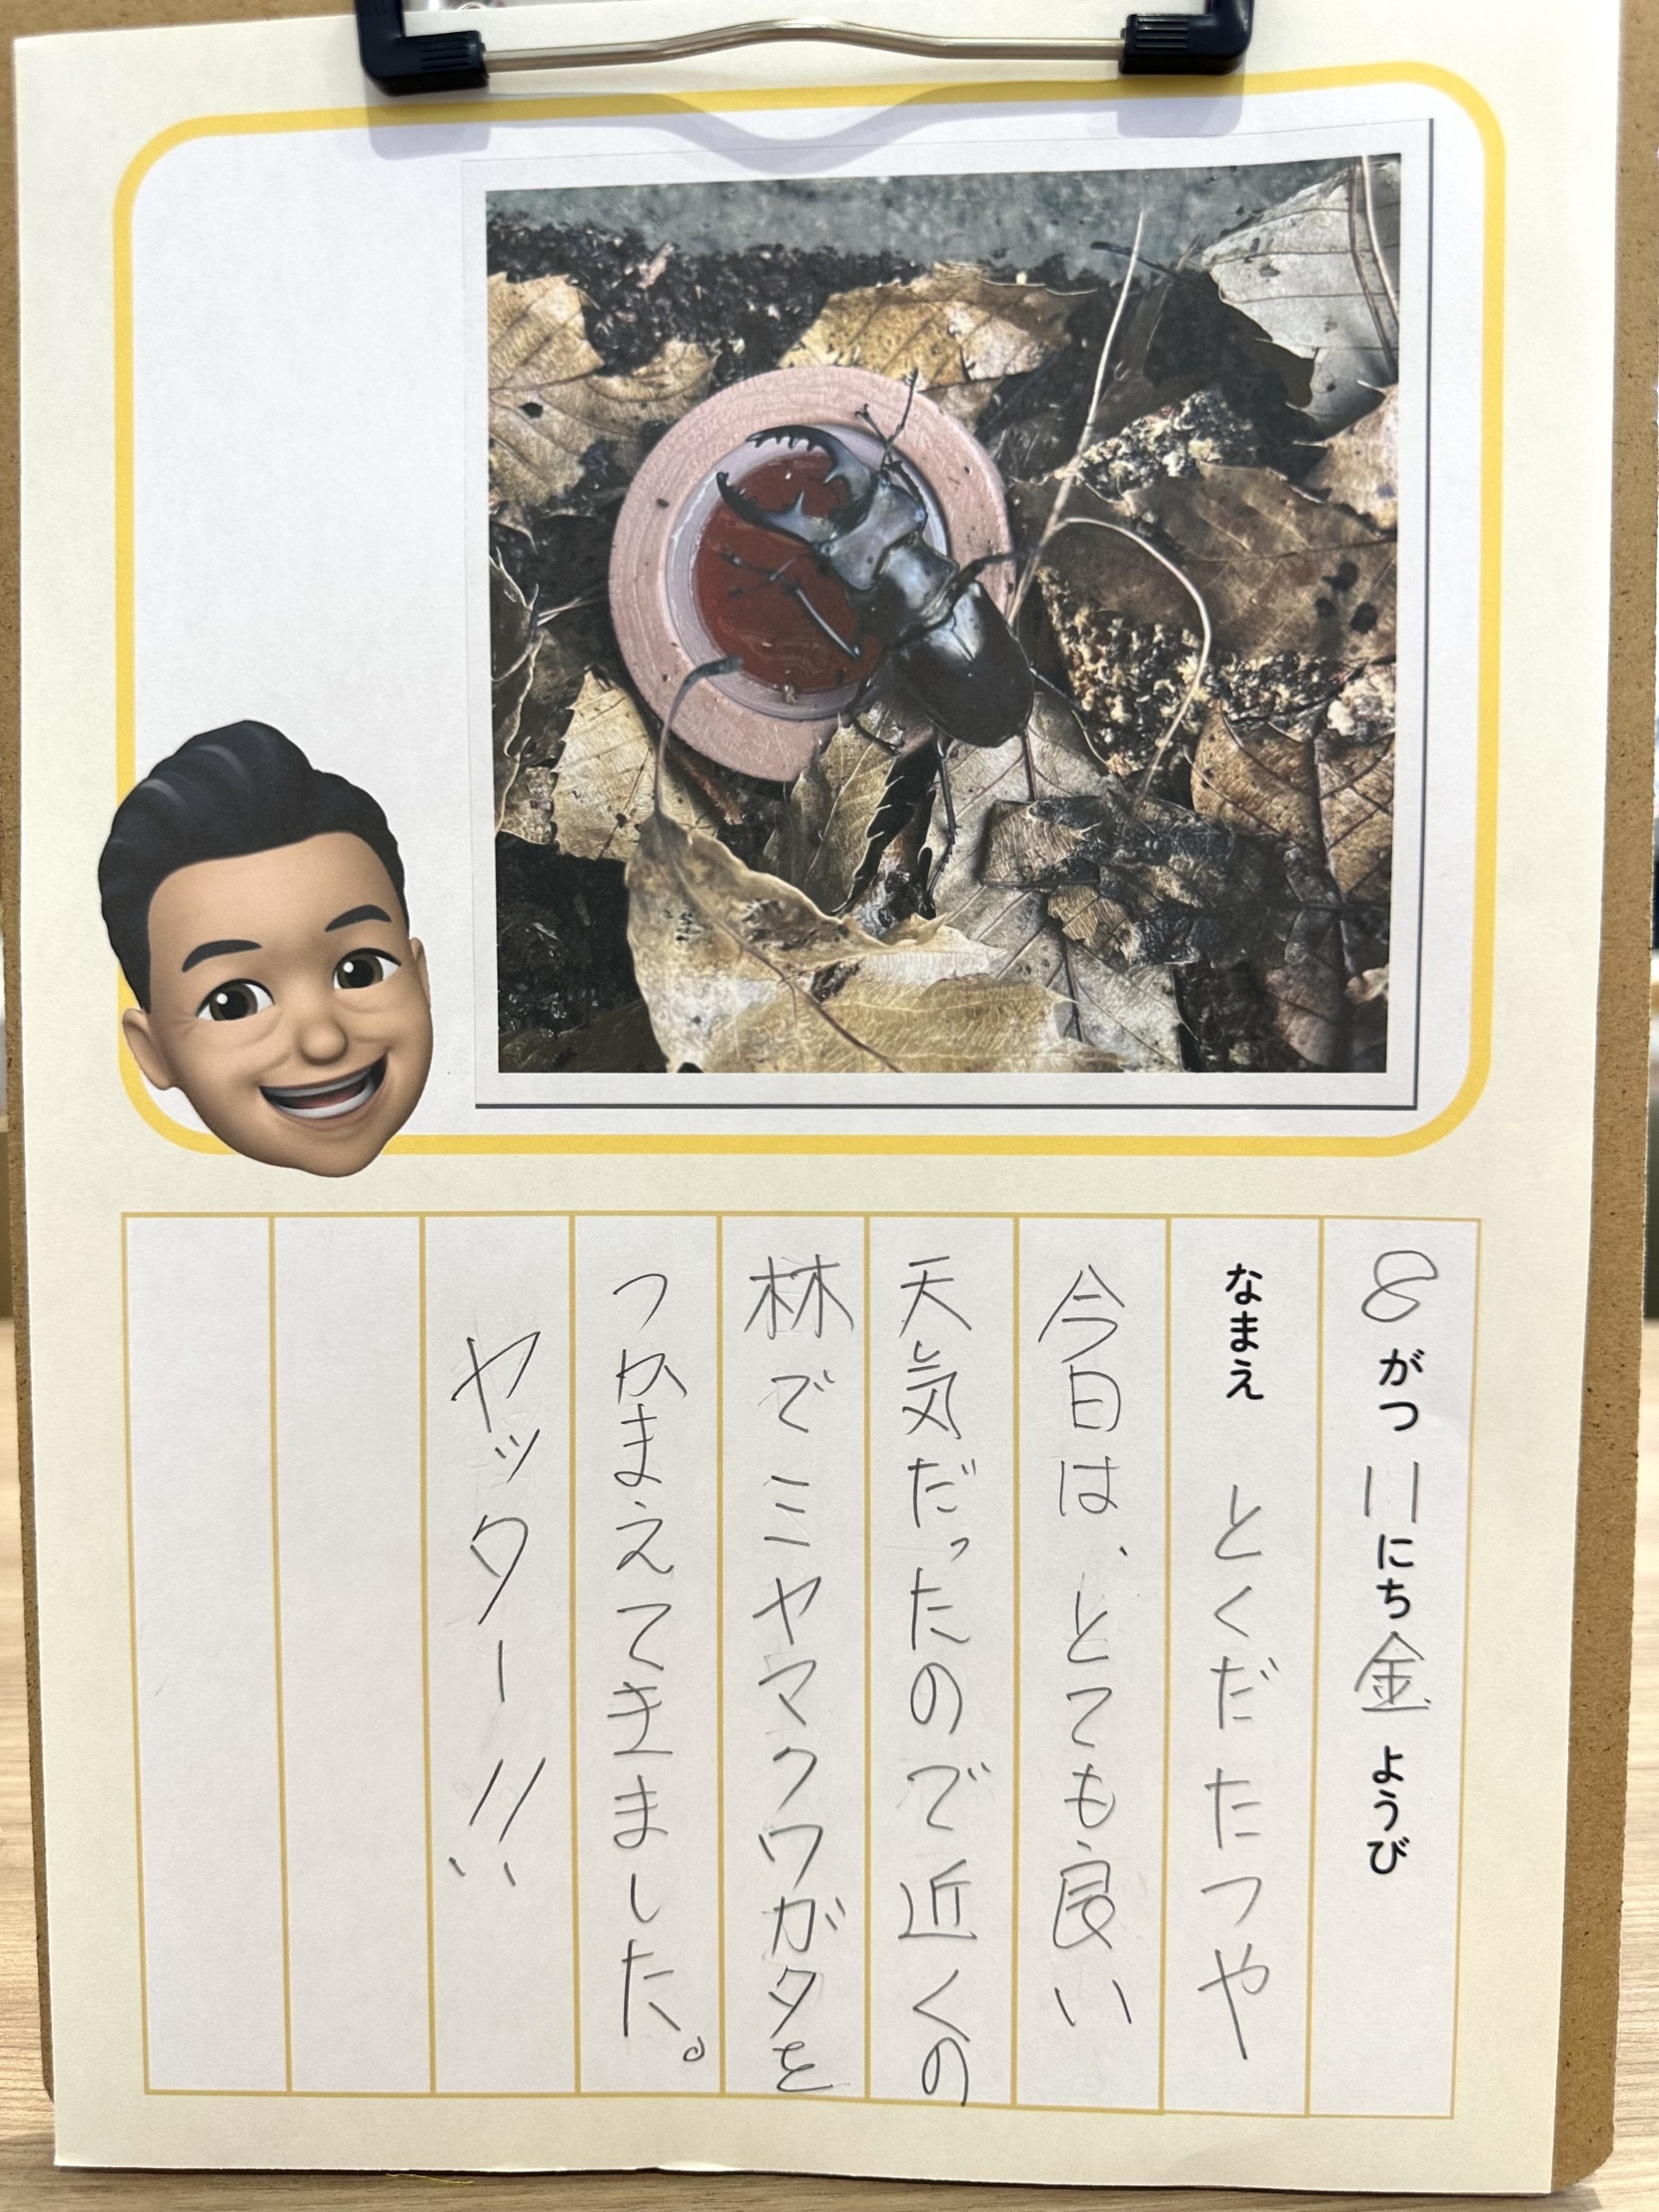 8がつ11にち金ようび
なまえ とくだたつや
今日は、とても良い
天気だったので近くの
林でミヤマクワガタを
つかまえてきました。
ヤッター!!